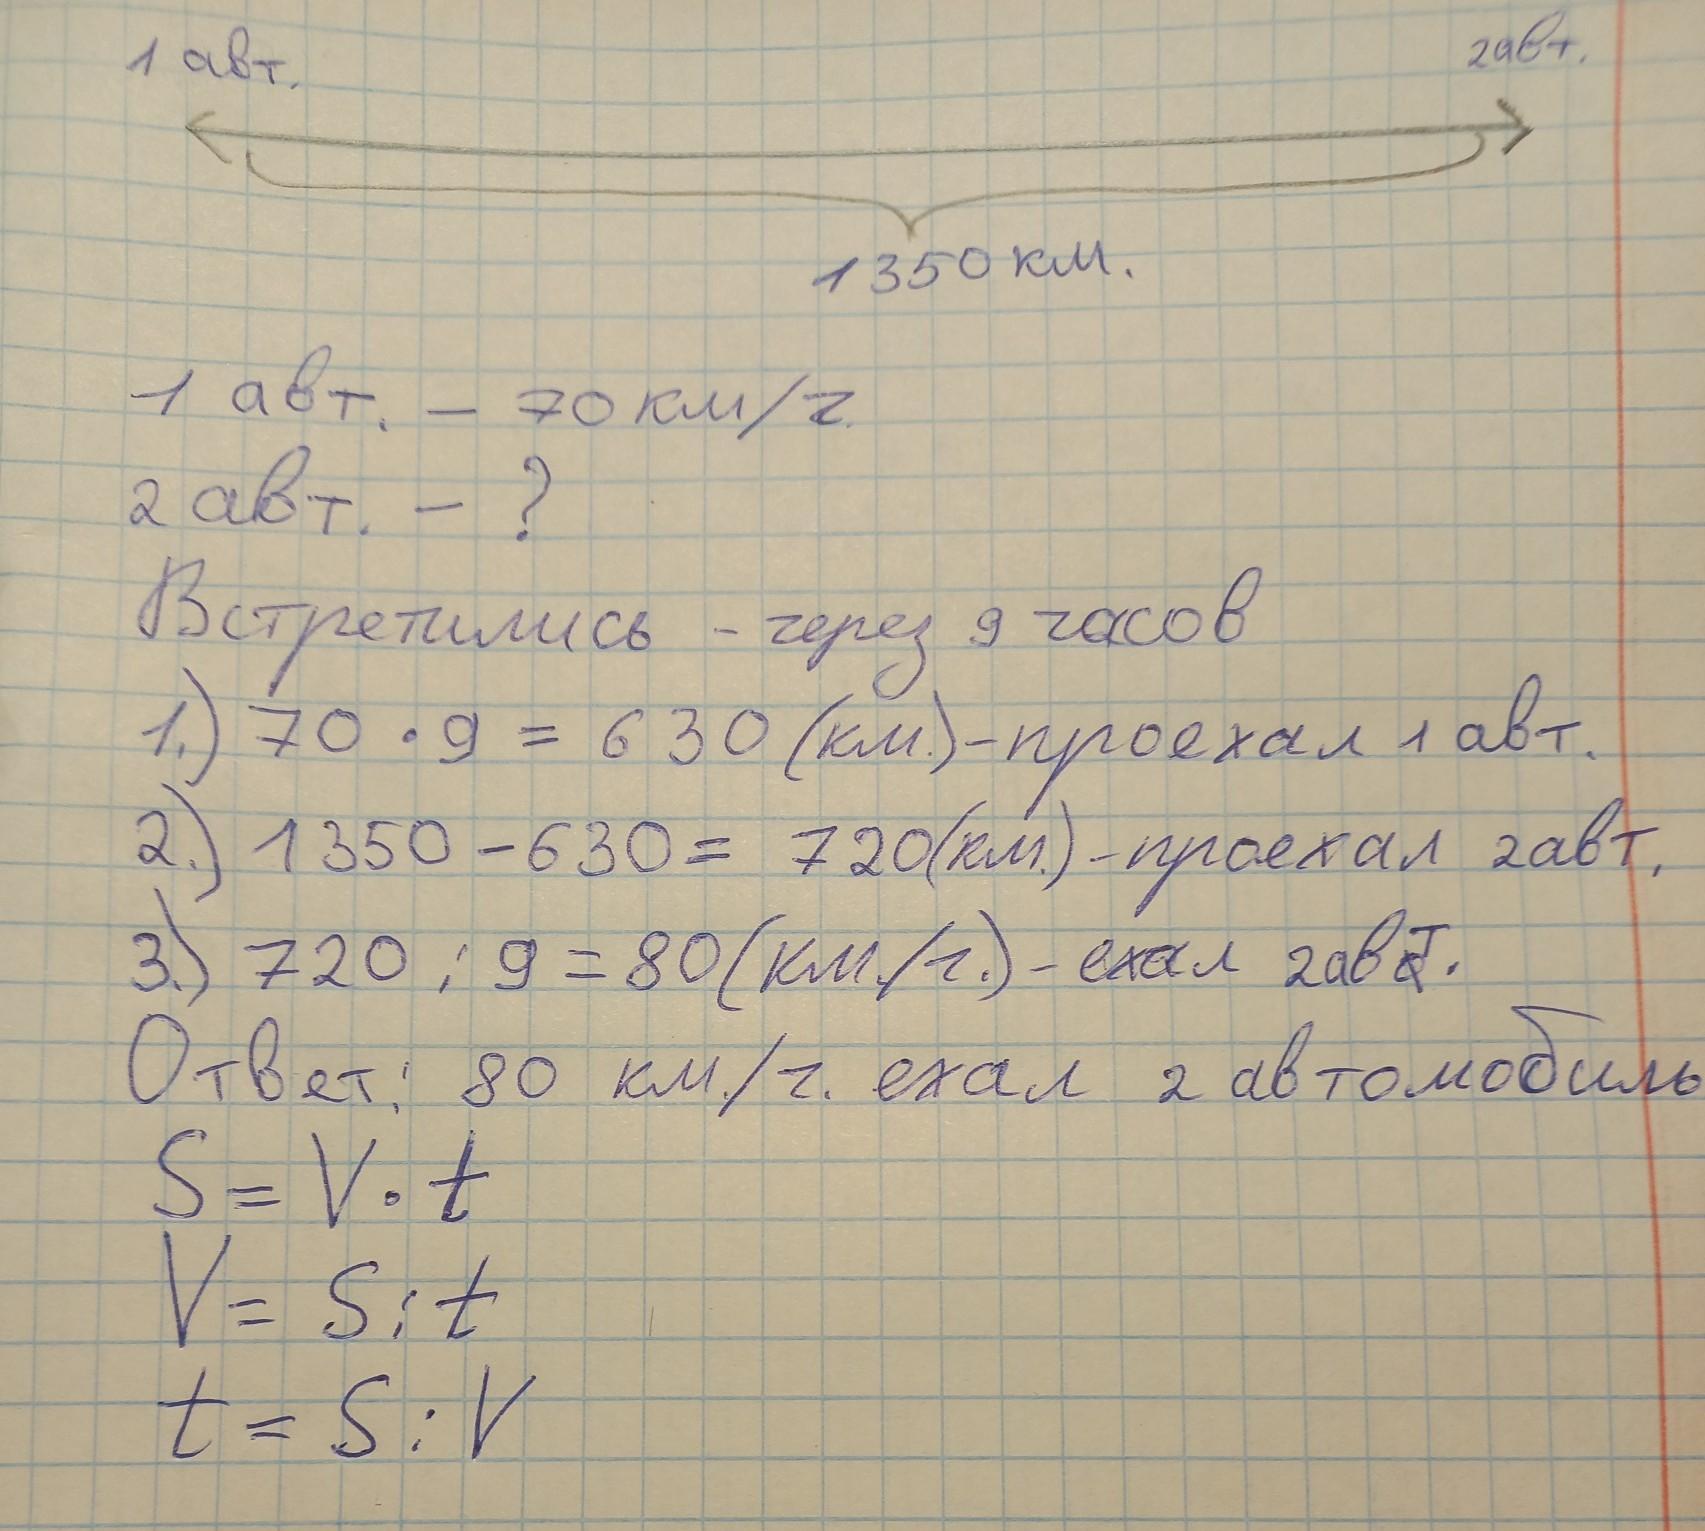 1 авт. 2авт.
1350 км.
1 авт. – 70 км/ч.
2 авт. – ?
Встретились – через 9 часов
1.) 70 · 9 = 630 (км.) – проехал 1 авт.
2.) 1350 – 630 = 720 (км.) – проехал 2авт.
3.) 720 : 9 = 80 (км./ч.) – ехал 2авт.
Ответ: 80 км./ч. ехал 2 автомобиль
S = V · t
V = S : t
t = S : V